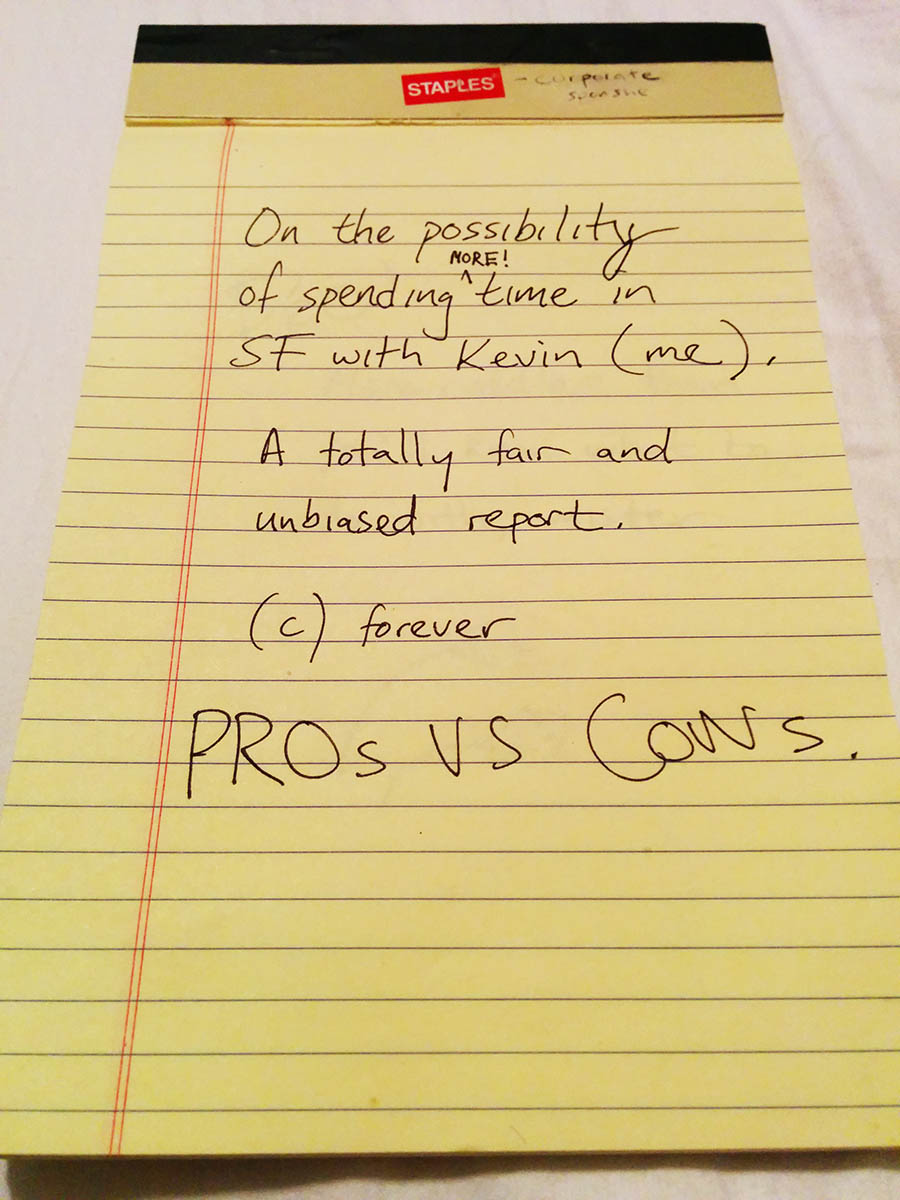 STAPLES - corporate
On the possibility
MORE!
of spending ^ time in
SF with Kevin (me).
A totally fair and
unbiased report.
(c) forever
PROs VS CONs.